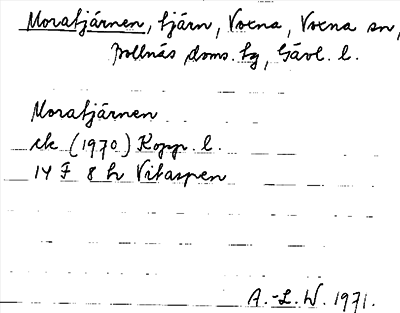 Moratjärnen, tjärn, Voxna, Voxna sn,
Bollnäs doms. tg, Gävl. l.
Moratjärnen
ek (1970) Kopp. l.
14 F 8 h Vitaspen
A.-L. W. 1971.